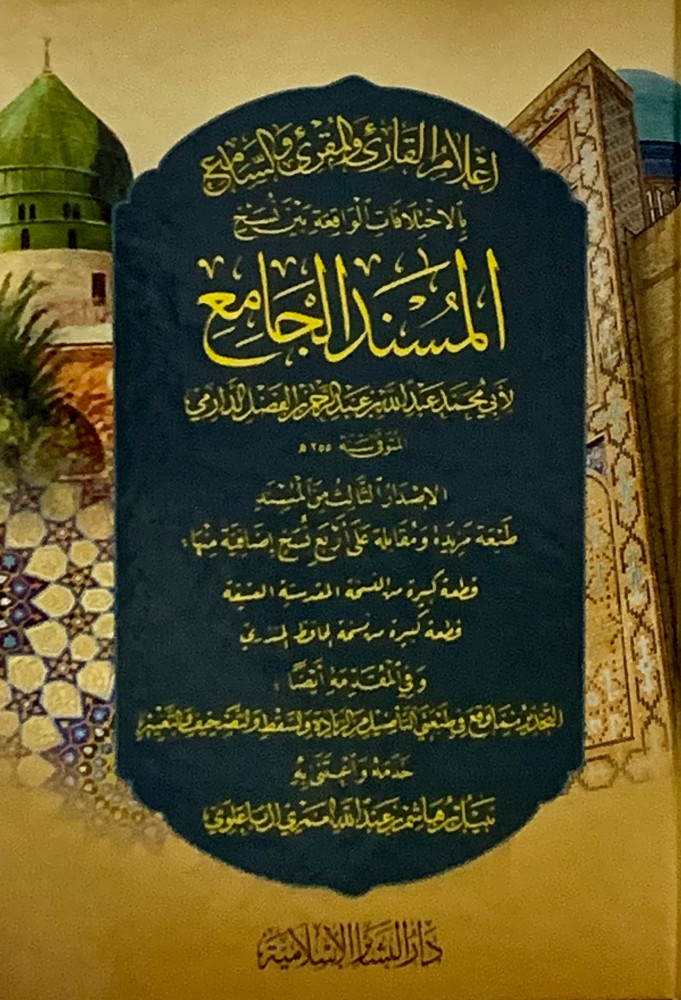 إعلام القارئ والمقرئ والسامع
بالاختلافات الواقعة بين نسخ
المسند الجامع
لأبي محمد عبد الله بن عبد الرحمن بن الفضل الدارمي
المتوفى سنة ٢٥٥ هـ
الإصدار الثالث من المسند
طبعة مزيدة ومقابلة على أربع نسخ إضافية منها:
قطعة كبيرة من النسخة المقدسية العتيقة
قطعة كبيرة من نسخة الحافظ المنذري
وفي المقدمة أيضا:
التحذير مما وقع في طبعتي التأصيل من الزيادة والسقط والتصحيف والتغيير
خدمه واعتنى به
نبيل بن هاشم بن عبد الله الغمري آل باعلوي
دار البشائر الإسلامية